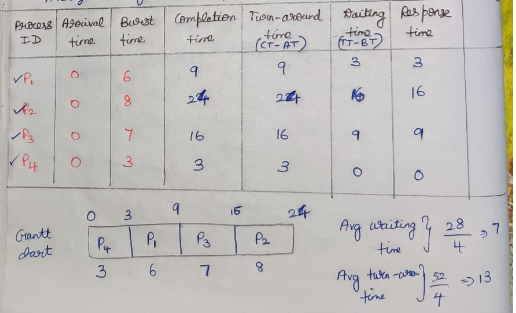 Process ID Arrival time Burst time Completion time Turn-around time (CT-AT) Waiting time (TT-BT) Response time
P1 0 6 9 9 3 3
P2 0 8 24 24 16 16
P3 0 7 16 16 9 9
P4 0 3 3 3 0 0
0 3 9 15 24
Gantt chart P4 P1 P3 P2
3 6 7 8
Avg waiting time } 28/4 => 7
Avg turn-aro time } 52/4 => 13